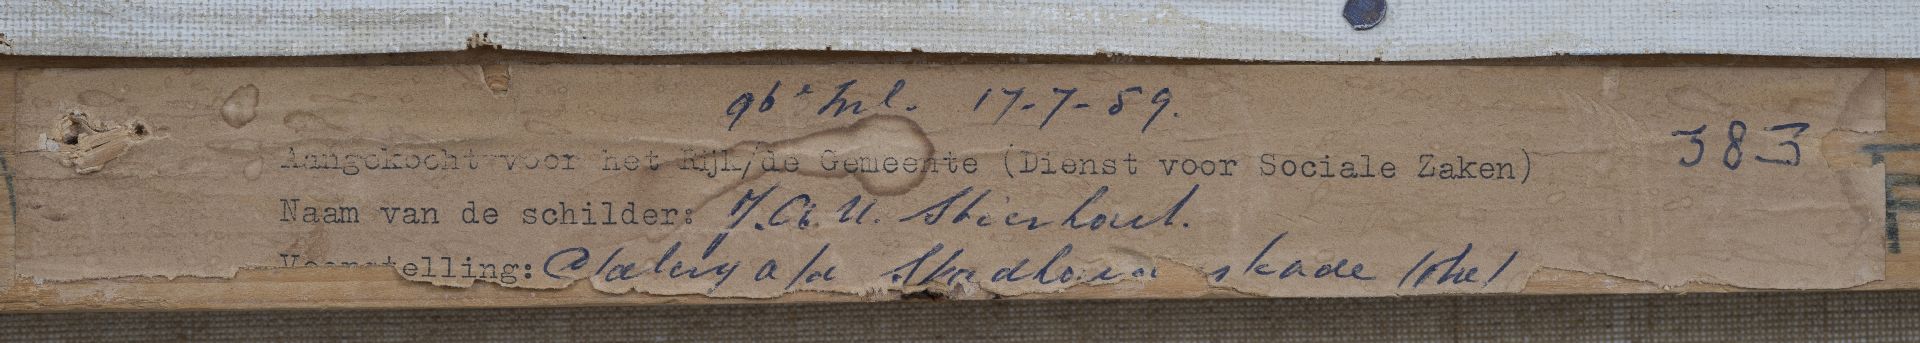 9b e Inl. 17-7-59.
383
Aangekocht voor het Rijk/de Gemeente (Dienst voor Sociale Zaken)
Naam van de schilder: J.A.U. Stierhout.
Voorstelling: Stadhouderskade